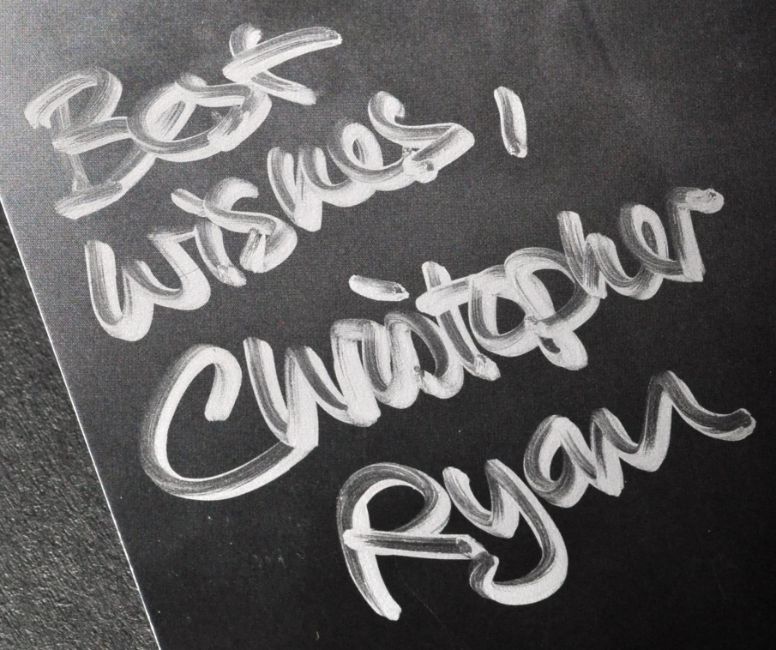 Best
wishes,
Christopher
Ryan